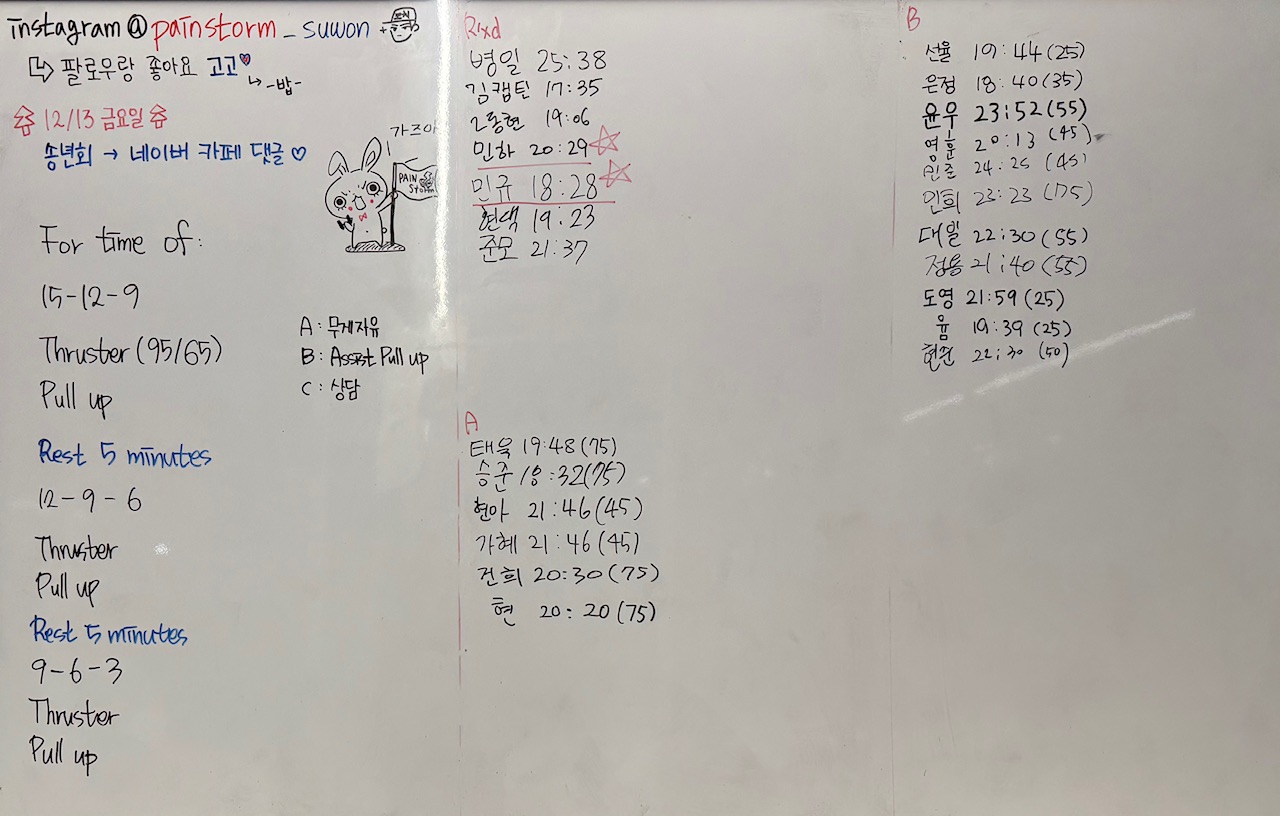 instagram @ painstorm _ suwon +
↳ 팔로우랑 좋아요 고고♥
↳ -밥-
12/13 금요일
송년회 → 네이버 카페 댓글 ♡
가즈아
PAIN
STORM
For time of:
15-12-9
Thruster (95/65)
Pull up
Rest 5 minutes
12-9-6
Thruster
Pull up
Rest 5 minutes
9-6-3
Thruster
Pull up
A: 무게자유
B: Assist Pull up
C: 상담
Rxd
병일 25:38
김캡틴 17:35
2동현 19:06
민하 20:29
민규 18:28
현택 19:23
준모 21:37
A
태욱 19:48 (75)
승준 18:32 (75)
현아 21:46 (45)
가혜 21:46 (45)
건희 20:30 (75)
현 20:20 (75)
B
선율 19:44 (25)
은정 18:40 (35)
윤우 23:52 (55)
영훈 20:13 (45)
민준 24:25 (45)
민희 23:23 (75)
대일 22:30 (55)
정용 21:40 (55)
도영 21:59 (25)
윰 19:39 (25)
22:30 (50)